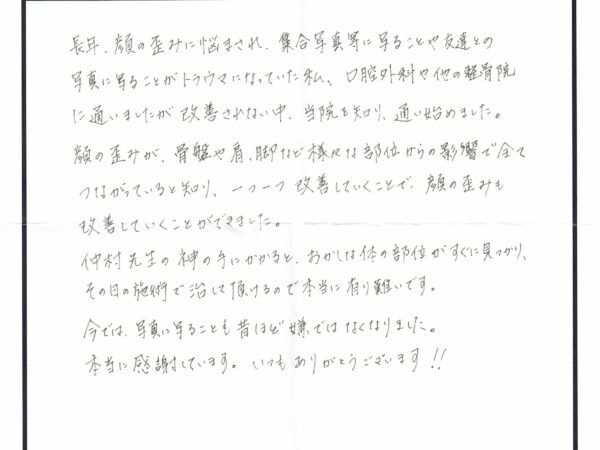 長年、顔の歪みに悩まされ、集合写真等に写ることや友達との
写真に写ることがトラウマになっていた私、口腔外科や他の整骨院
に通いましたが改善されない中、当院を知り、通い始めました。
顔の歪みが、骨盤や肩、脚など様々な部位からの影響で全て
つながっていると知り、一つ一つ改善していくことで、顔の歪みも
改善していくことができました。
仲村先生の神の手にかかると、おかしな体の部位がすぐに見つかり、
その日の施術で治して頂けるので本当に有り難いです。
今では、写真に写ることも昔ほど嫌ではなくなりました。
本当に感謝しています。いつもありがとうございます!!